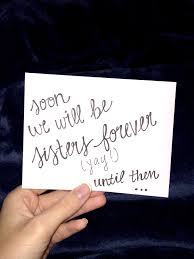 soon
we will be
sisters forever
(yay!)
until then
...